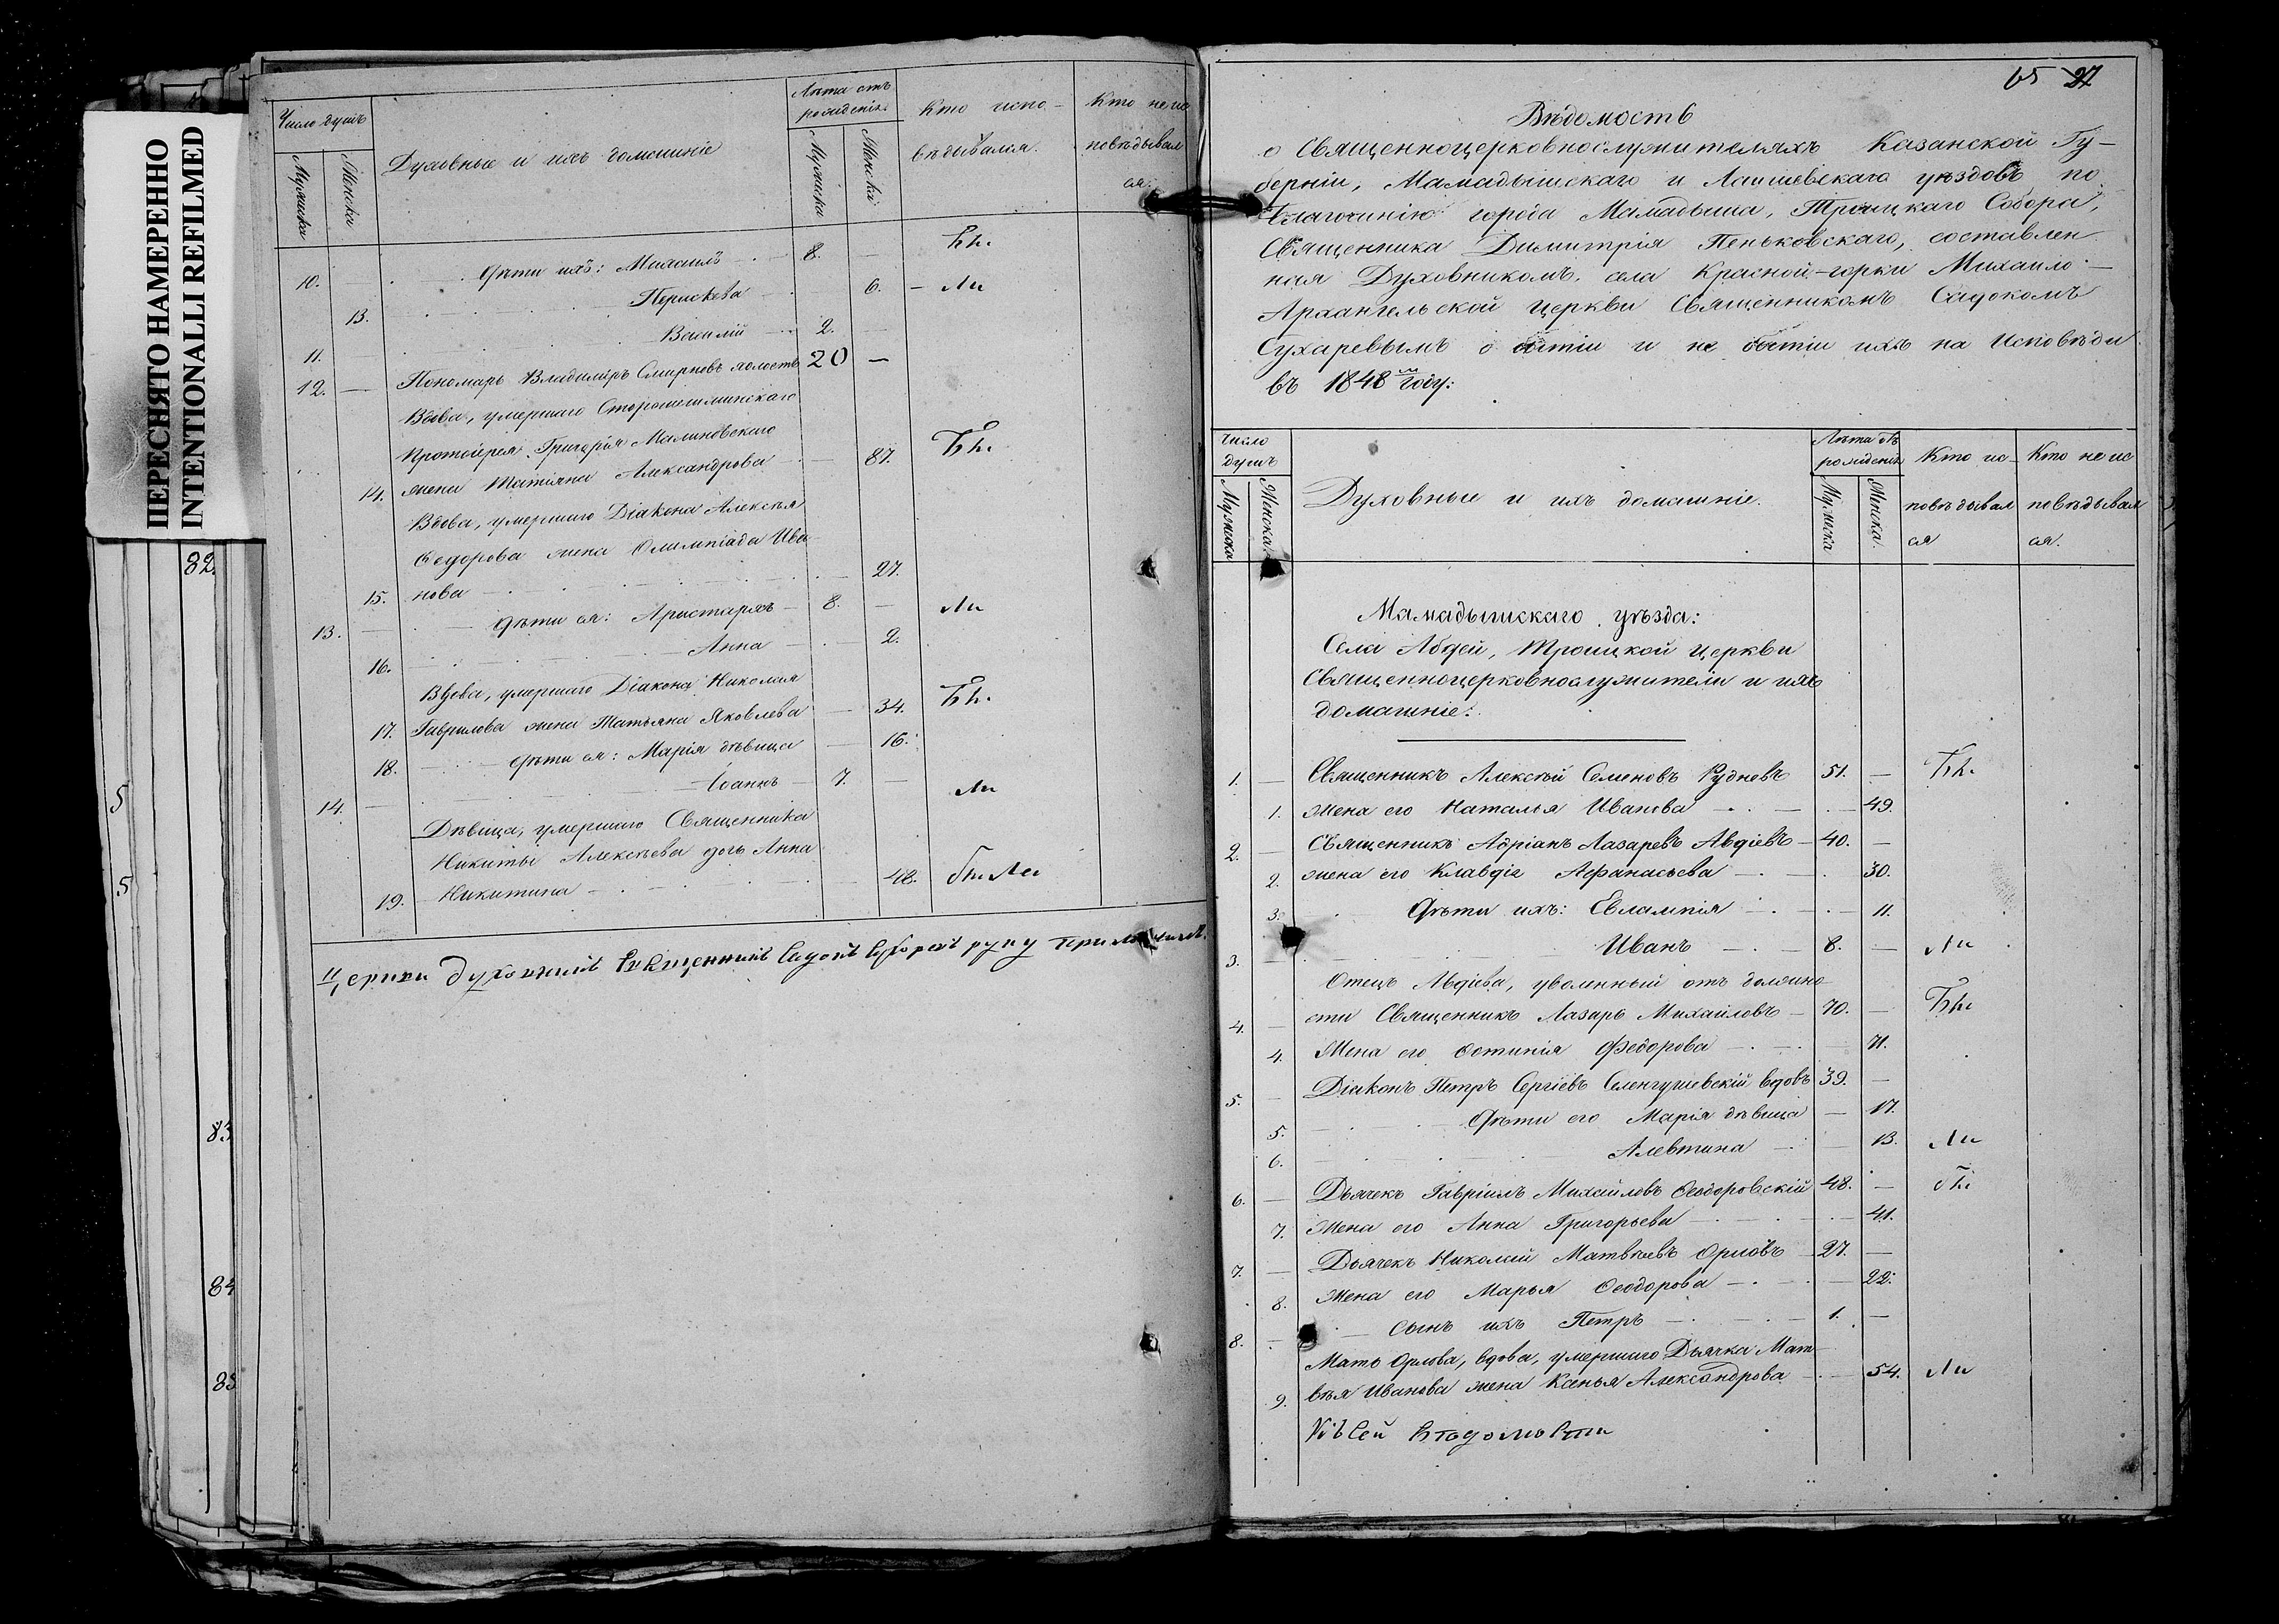 ПЕРЕСНЯТО НАМЕРЕННО
INTENTIONALLI REFILMED
82.
5
5
83
84
85
Число душъ
Мужеска
Женска
Духовные и ихъ домашніе
Лѣта отъ рожденія
Мужеска
Женска
Кто испо-
вѣдывался.
Кто не ис
повѣдывал
ся.
10. Дѣти ихъ: Михаилъ 8. — Бы.
13. Перискева 6. — Ли
11. Василій 2. —
12. — Пономарь Владиміръ Смирновъ холостъ 20 —
Вдова, умершаго Старошешминскаго
Протоіерея Григорія Малиновскаго
14. жена Татіяна Александрова — 87. Бы.
Вдова, умершаго Діакона Алексѣя
Ѳедорова жена Олимпіада Ива
15. нова — 27.
13. — Дѣти ея: Аристархъ — 8. — Ли
16. Анна — 2.
Вдова, умершаго Діакона Николая
17. Гаврилова жена Татьяна Яковлева — 34. Бы.
18. Дѣти ея: Марія дѣвица — 16.
14. — Іоаннъ — 7. — Ли
Дѣвица, умершаго Священника
Никиты Алексѣева дочь Анна
19. Никитина — 48. бы Ли
Церкви Духовникъ Священникъ Садокъ Сухаревъ руку приложилъ.
65 27
Вѣдомость
о Священноцерковнослужителяхъ Казанской Гу-
берніи, Мамадышскаго и Лаишевскаго уѣздовъ, по
Благочинію города Мамадыша, Троицкаго Собора,
Священника Димитрія Пеньковскаго, составлен
ная Духовникомъ, села Красной-горки Михаило-
Архангельской церкви Священникомъ Садокомъ
Сухаревымъ о бытіи и не бытіи ихъ на Исповѣди
въ 1848м году:
Число
душъ
Мужеска
Женска.
Духовные и ихъ домашніе.
Лѣта отъ
рожденія
Мужеска
Женска.
Кто ис-
повѣдывал
ся
Кто не ис
повѣдывал
ся.
Мамадышскаго уѣзда:
Села Абдей, Троицкой церкви
Священноцерковнослужители и ихъ
домашніе:
1. — Священникъ Алексѣй Семеновъ Рудневъ 51. — Бы.
1. жена его Наталья Иванова — 49.
2. — Священникъ Адріанъ Лазаревъ Авдіевъ — 40. —
2. жена его Клавдія Афанасьева — 30.
3. Дѣти ихъ: Евлампія — 11.
3. — Иванъ — 8. — Ли
Отецъ Авдіева, уволенный отъ должно
4. — сти Священникъ Лазарь Михайловъ — 70. — Бы
4. Жена его Фотинія Федорова — 71.
5. — Діаконъ Петръ Сергіевъ Селенгушевскій вдовъ 39. —
5. Дѣти его Марія дѣвица — 17.
6. Алевтина — 13. Ли
6. — Дьячекъ Гавріилъ Михайловъ Ѳеодоровскій 48. — бы
7. Жена его Анна Григорьева — 41.
7. — Дьячекъ Николай Матвѣевъ Орловъ — 27. —
8. жена его Марья Ѳеодорова — 22.
8. — Сынъ ихъ Петръ — 1. —
Мать Орлова, вдова, умершаго Дьячка Мат-
9. вѣя Иванова жена Ксенья Александрова — 54. Ли
Къ сей вѣдомости